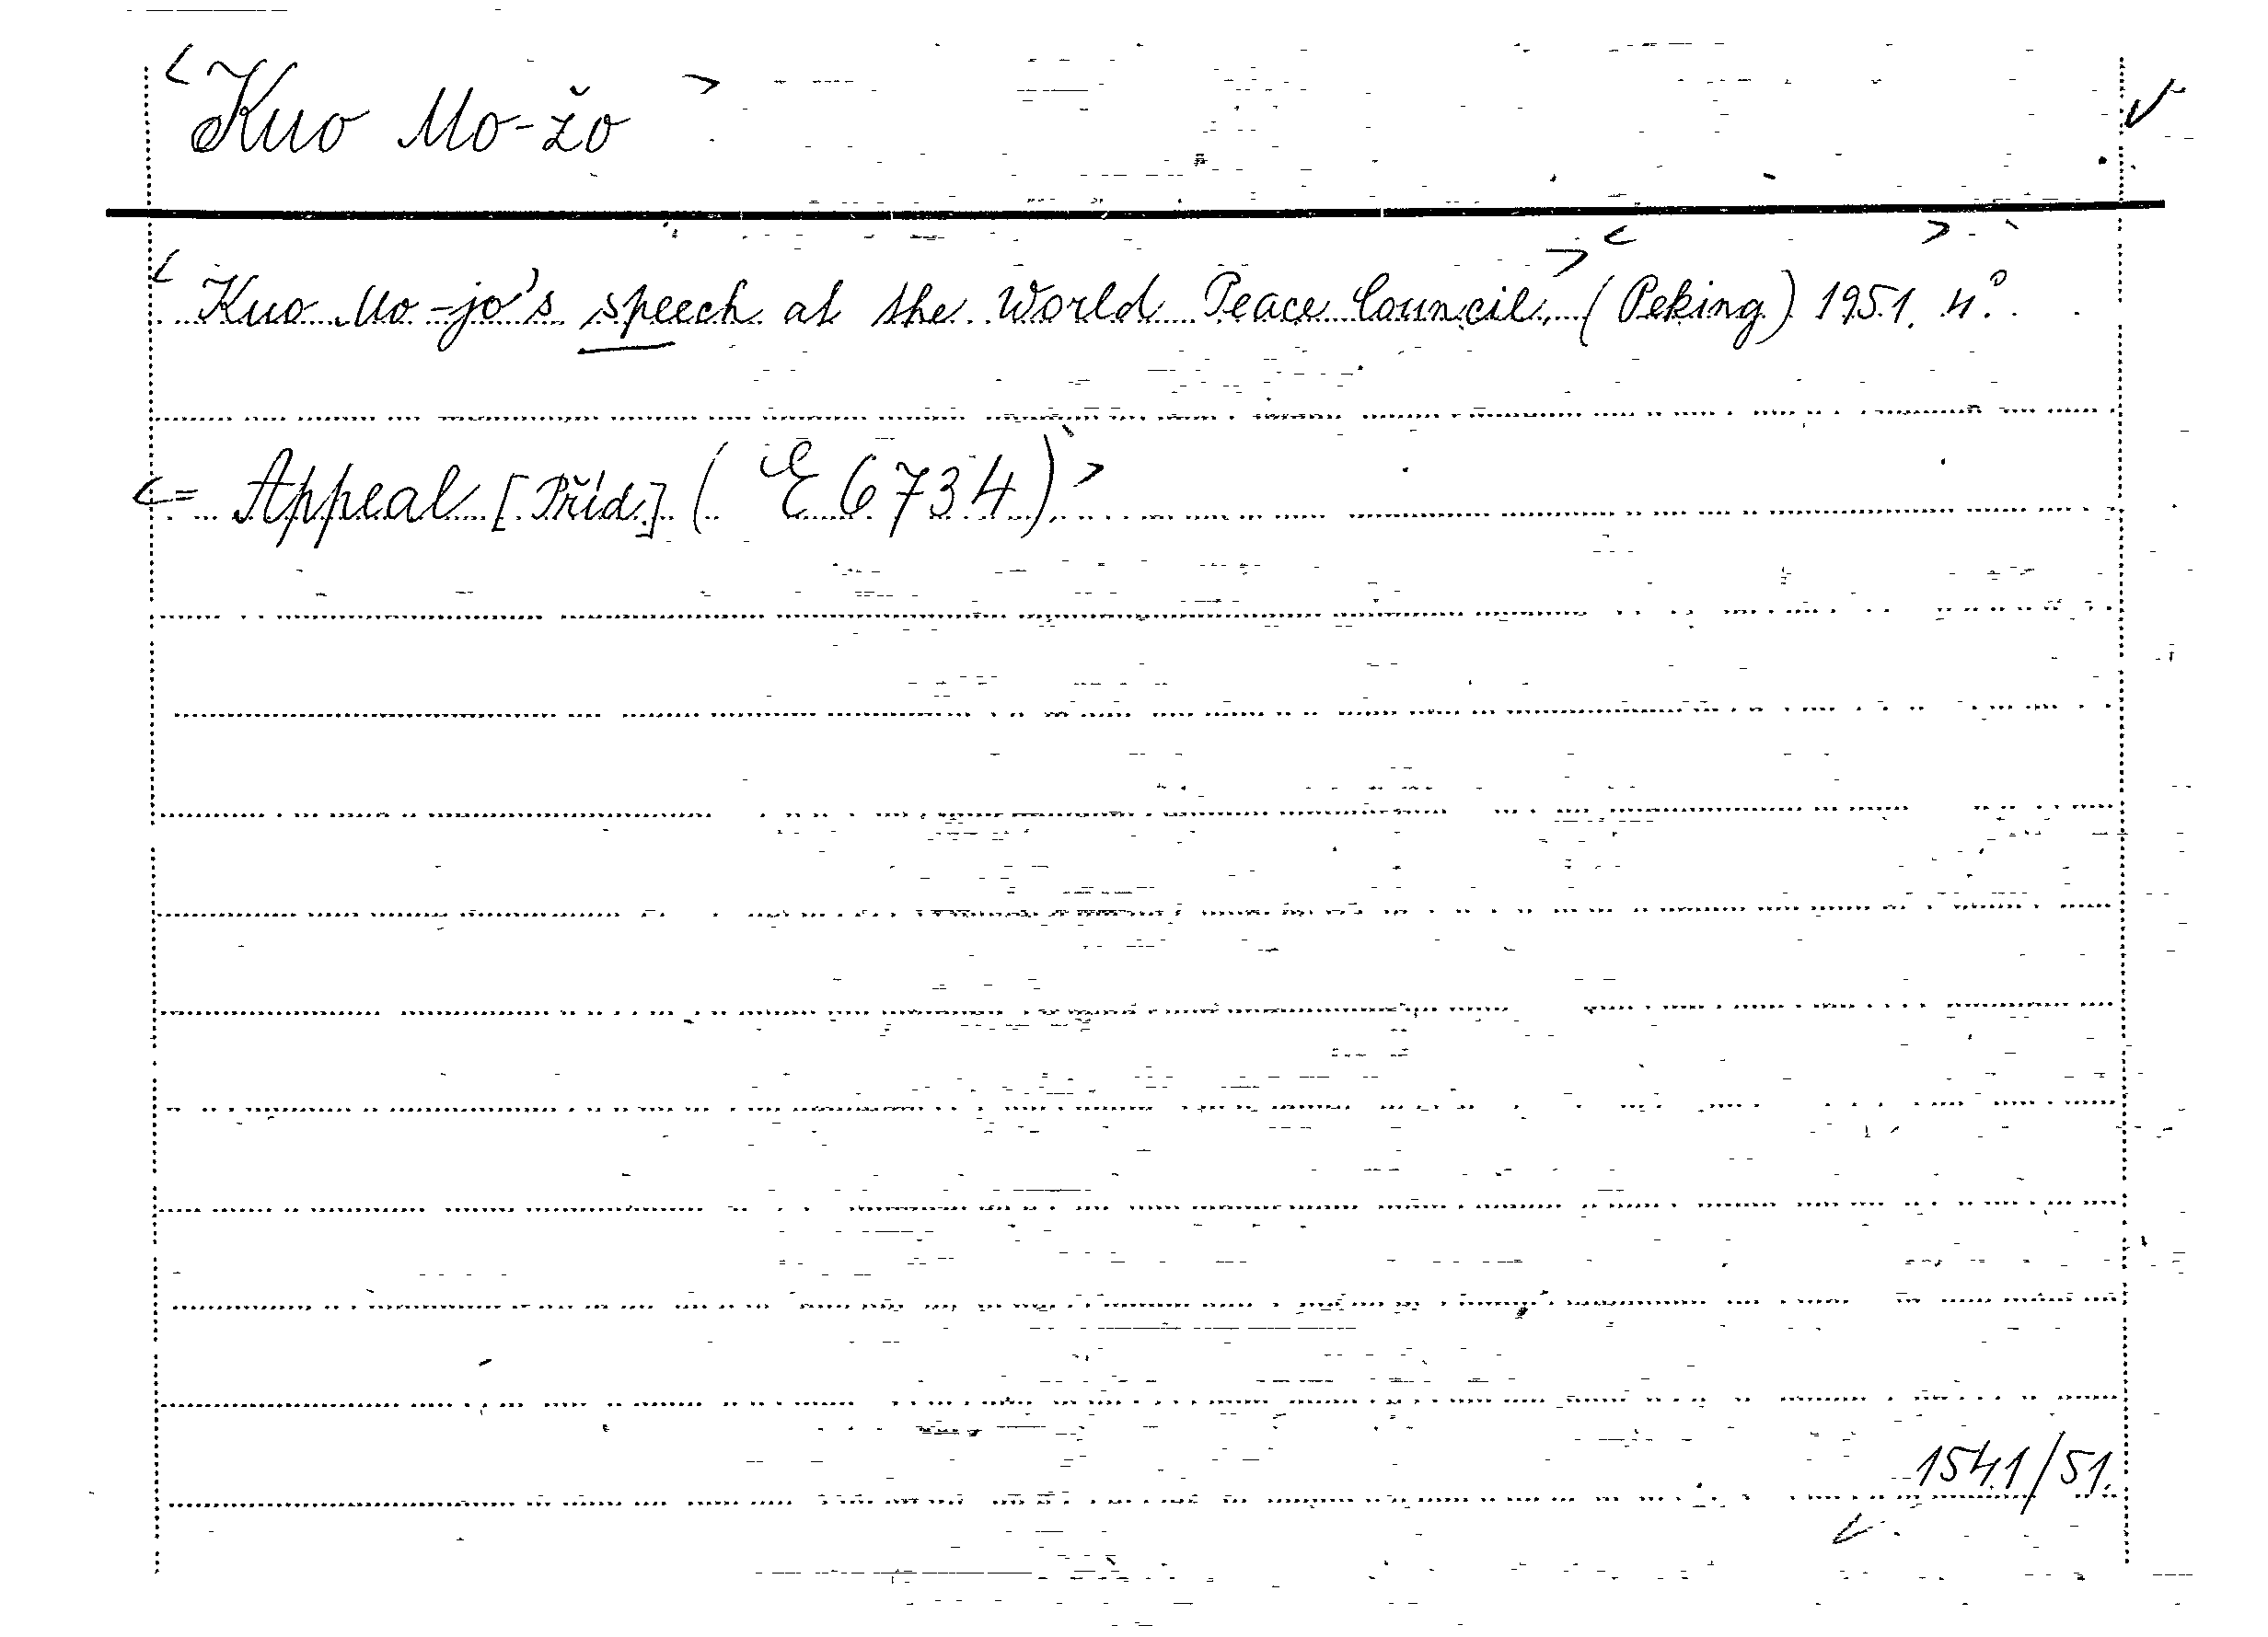 <Kuo Mo-žo>
<Kuo Mo-jo's speech at the World Peace Council,> <(Peking) 1951.> 4°.
<= Appeal [Příd.] ( E 6734)>
1541/51.